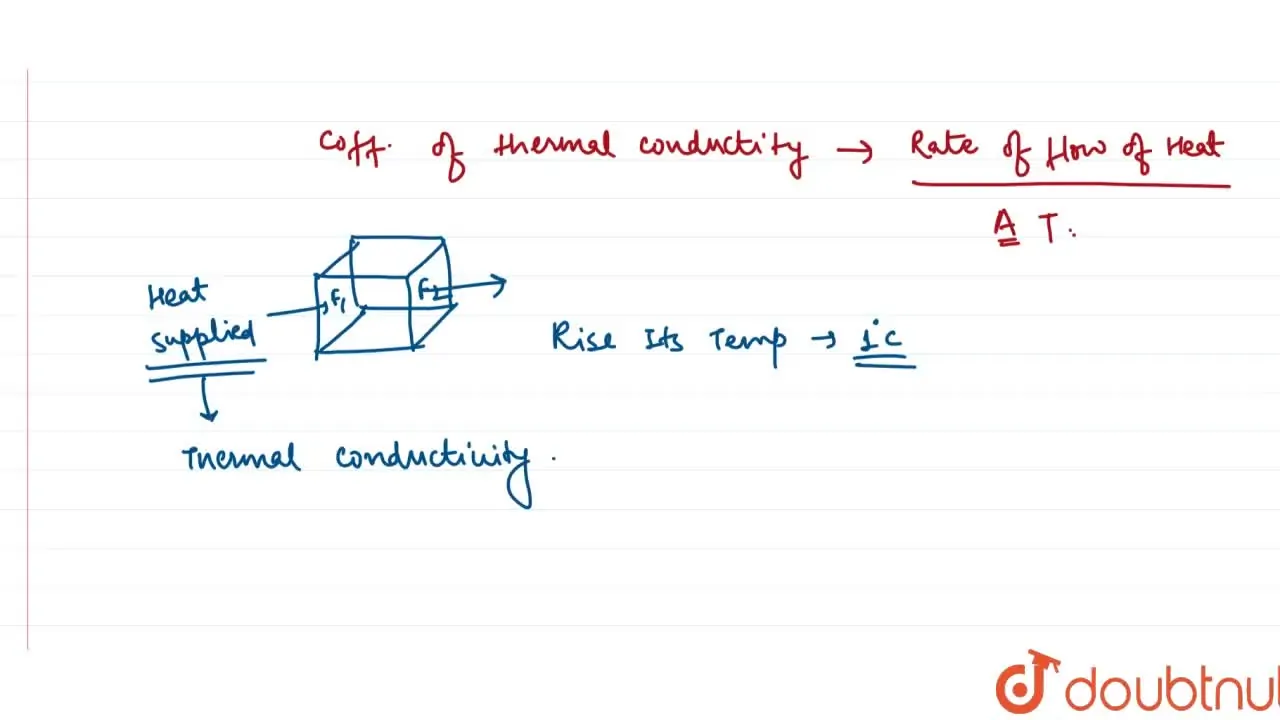 Coff. of thermal conductity → Rate of flow of Heat
A T.
Heat
supplied
F1
F2
Rise Its Temp → 1°C
Thermal conductivity.
doubtnut